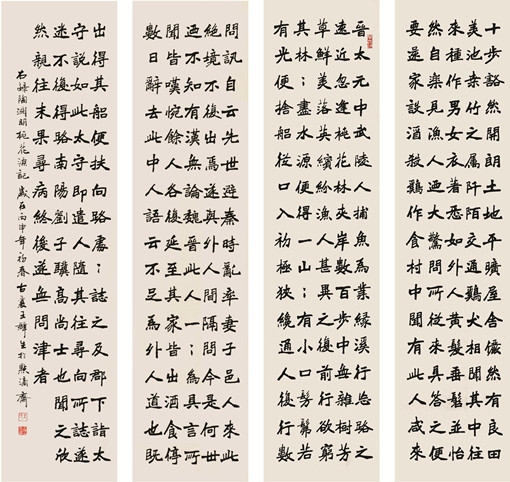 晉太元中武陵人捕魚為業緣溪行忘路之
遠近忽逢桃花林夾岸數百步中無雜樹芳
草鮮美落英繽紛漁人甚異之復前行欲窮
其林；盡水源得一山；有小口髣髴若
有光便捨船從口入初極狹纔通人復行數
十步豁然開朗土地平曠屋舍儼然有良田
美池桑竹之屬阡陌交通雞犬相聞其中往
來種作男女衣著悉如外人黃髮垂髫並怡
然自樂見漁人迺大驚問所從來具答之便
要還家設酒殺雞作食村中聞有此人咸來
問訊自云先世避秦時亂率妻子邑人來此
絕境不復出焉遂與外人間隔問今是何世
迺不知有漢無論魏晉此人一；為具言所
聞皆嘆惋餘人各復延至其家皆出酒食停
數日辭去此中人語云不足為外人道也既
出得其船便扶向路處；誌之及郡下詣太
守說如此太守即遣人隨其往尋向所誌遂
迷不復得路南陽劉子驥高尚士也聞之欣
然親往未果尋病終後遂無問津者
右錄陶淵明桃花源記歲在丙申年初春古襄王輝生於默濤齋